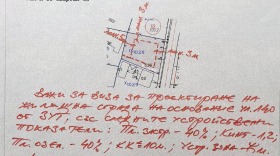 ВАЖИ ЗА ВИЗА ЗА ПРОЕКТИРАНЕ НА
ЖИЛИЩНА СГРАДА НА ОСНОВАНИЕ чл.140
ОТ ЗУТ, със следните устройствени
ПОКАЗАТЕЛИ: Пл. застр. - 40%; Кинт - 1,2;
Пл. озел. - 40%; КК≤10м.; Устр. зона - Жм.